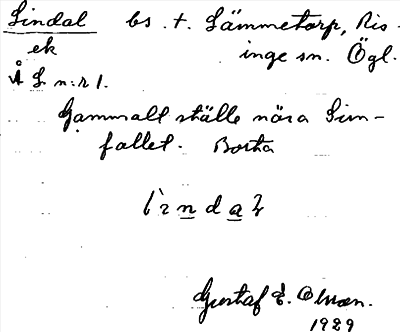 Lindal bs. t. Lämmetorp, Ris-
ek inge sn. Ögl.
Å L. n:r 1.
Gammalt ställe nära Lim-
fallet. Borta
Gustaf E. Olsson.
1929